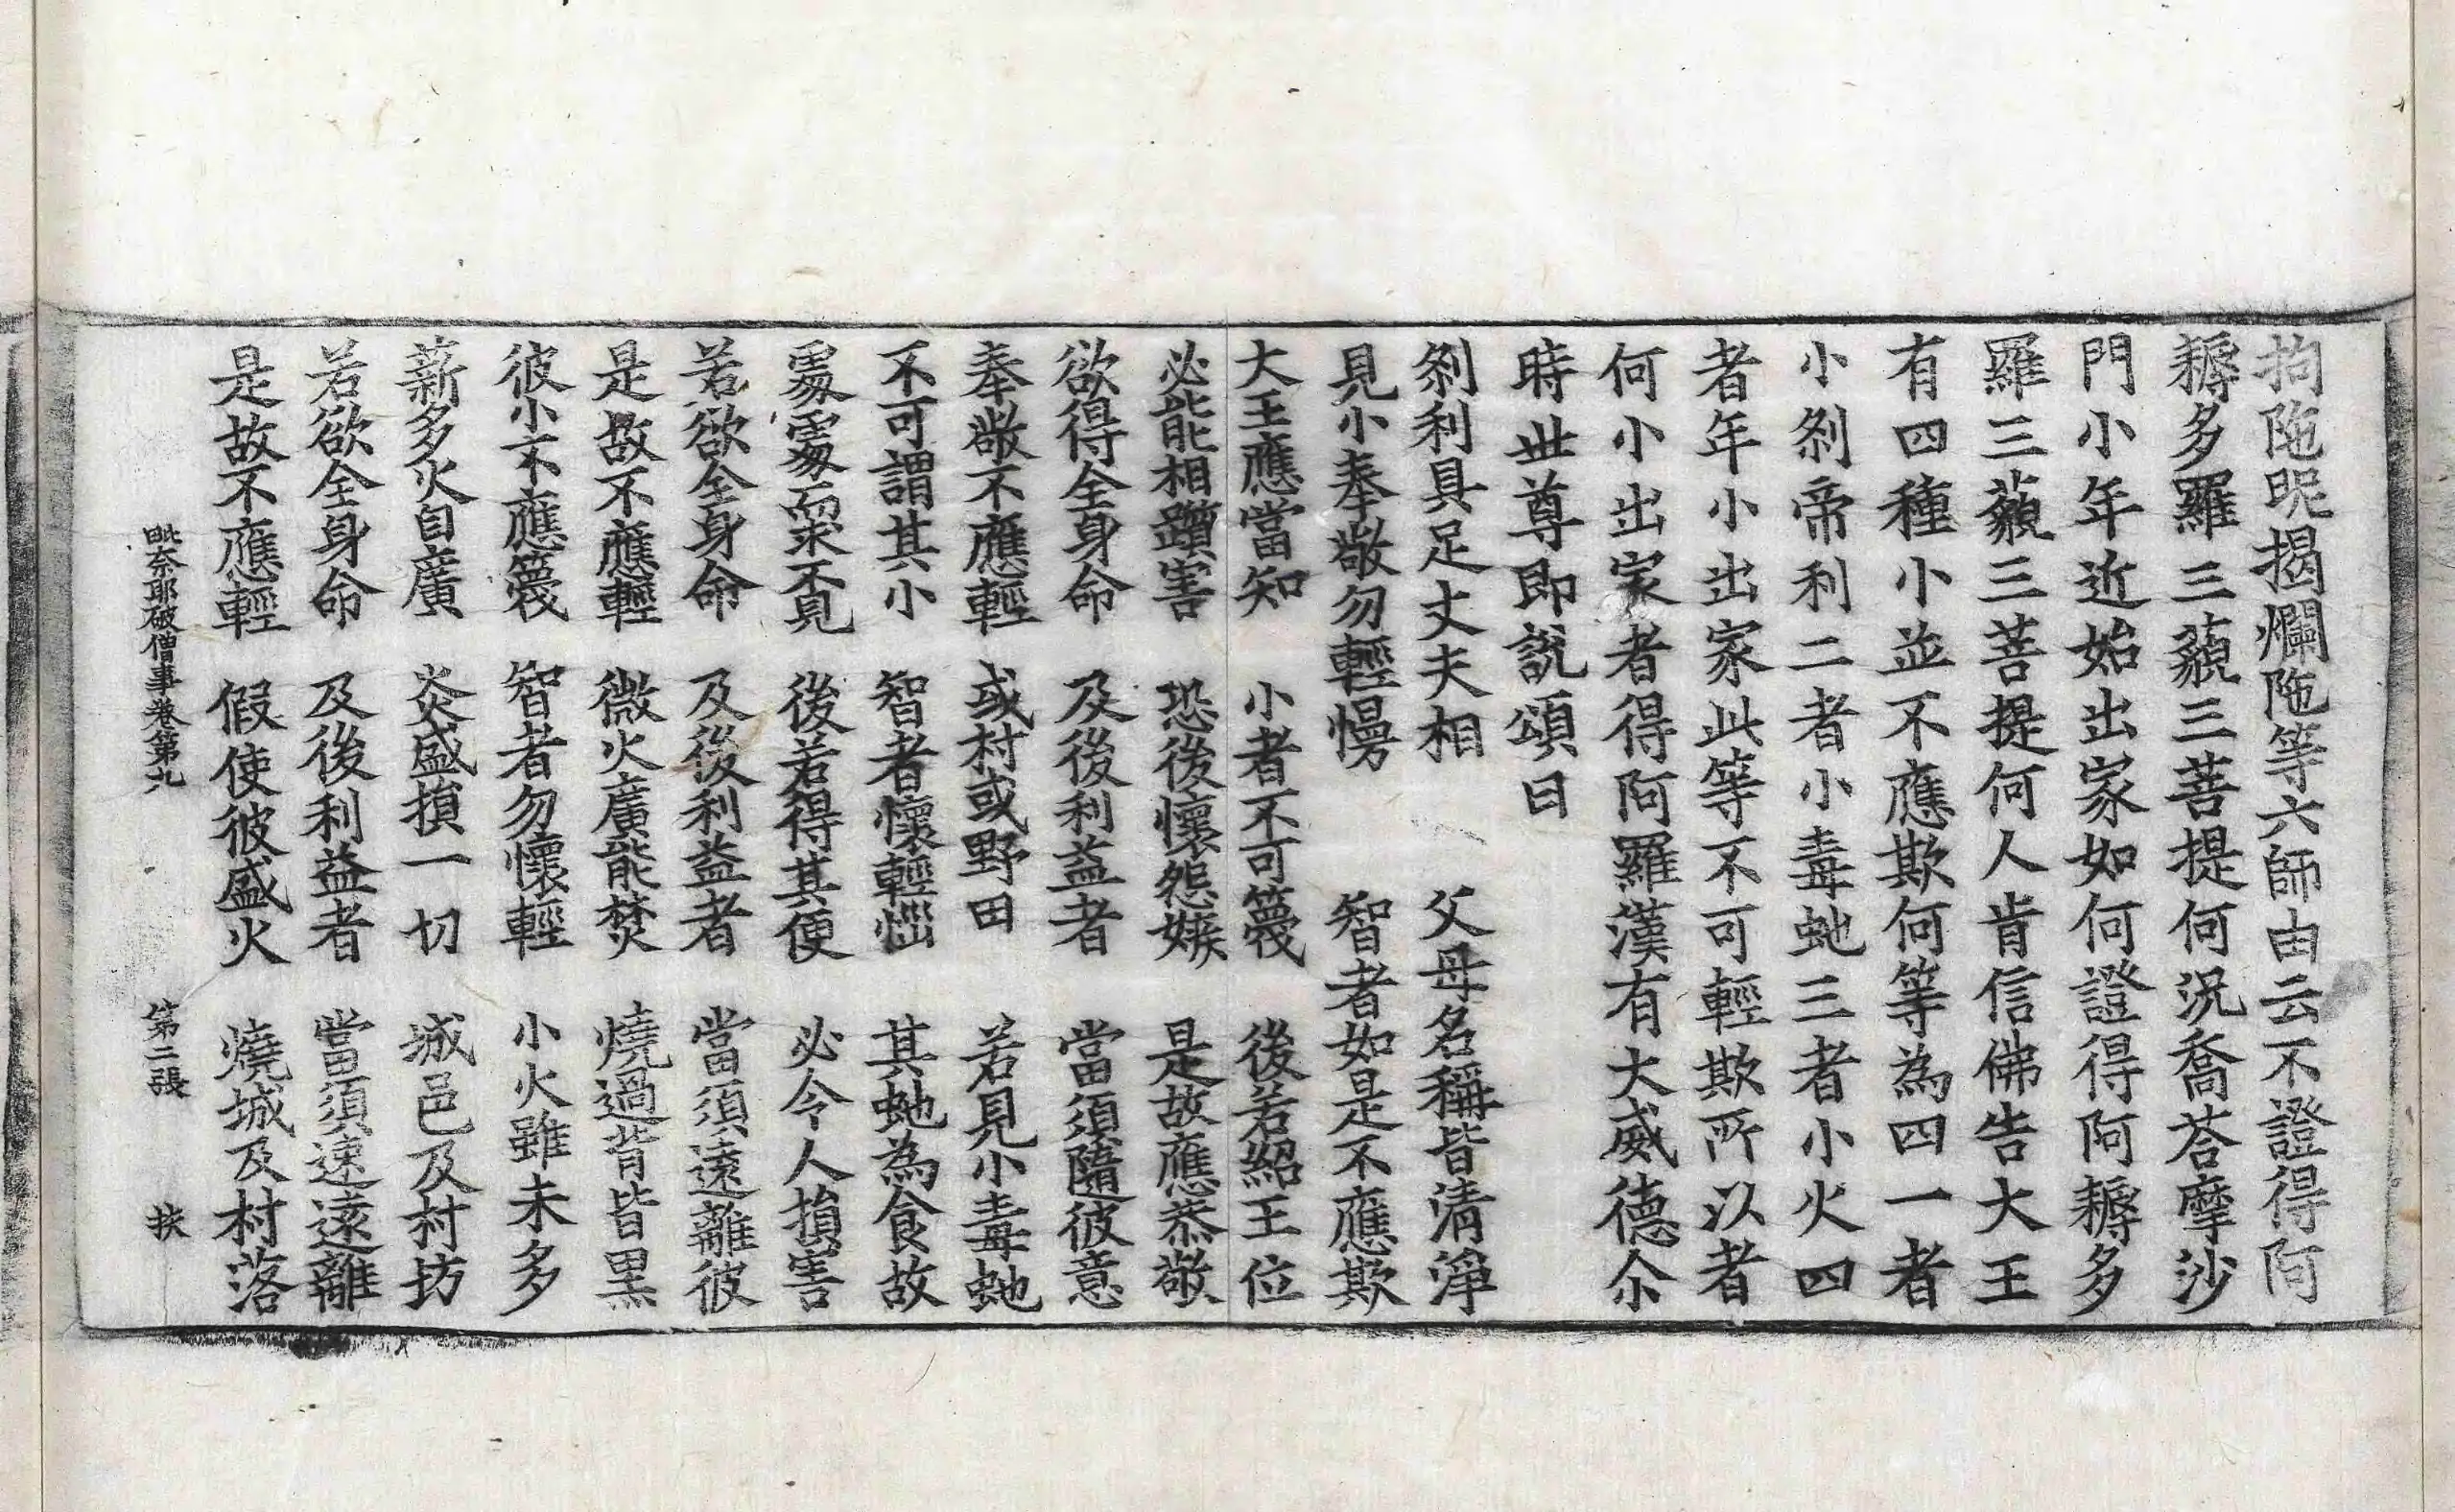 拘陁昵揭爛陁等六師由云不證得阿
耨多羅三藐三菩提何況喬荅摩沙
門小年近始出家如何證得阿耨多
羅三藐三菩提何人肯信佛告大王
有四種小並不應欺何等為四一者
小刹帝利二者小毒虵三者小火四
者年小出家此等不可輕欺所以者
何小出家者得阿羅漢有大威德尒
時世尊即說頌曰
刹利具足丈夫相　父母名稱皆清淨
見小奉敬勿輕慢　智者如是不應欺
大王應當知　小者不可篾　後若紹王位
必能相躓害　恐後懷怨嫉　是故應恭敬
欲得全身命　及後利益者　當須隨彼意
奉敬不應輕　或村或野田　若見小毒虵
不可謂其小　智者懷輕惱　其虵為食故
處處而求覓　後若得其便　必令人損害
若欲全身命　及後利益者　當須遠離彼
是故不應輕　微火廣能焚　燒過背皆黑
彼小不應篾　智者勿懷輕　小火雖未多
薪多火自廣　炎盛損一切　城邑及村坊
若欲全身命　及後利益者　當須速遠離
是故不應輕　假使彼盛火　燒城及村落
毗奈耶破僧事卷第九　第二張　扶